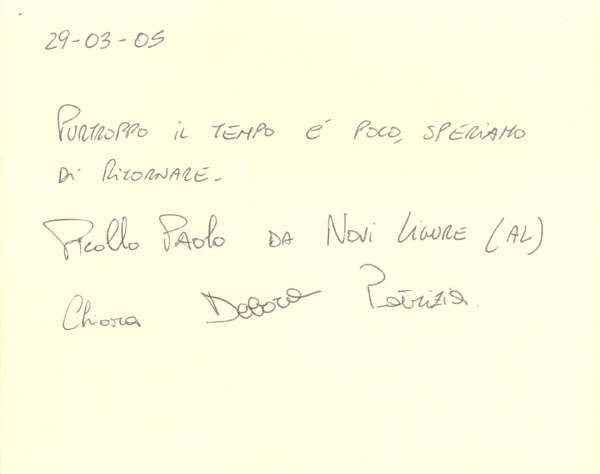 29-03-05
PURTROPPO IL TEMPO É POCO, SPERIAMO
DI RITORNARE.
Picollo PAOLO DA NOVI LIGURE (AL)
Chiara Debora Patrizia.